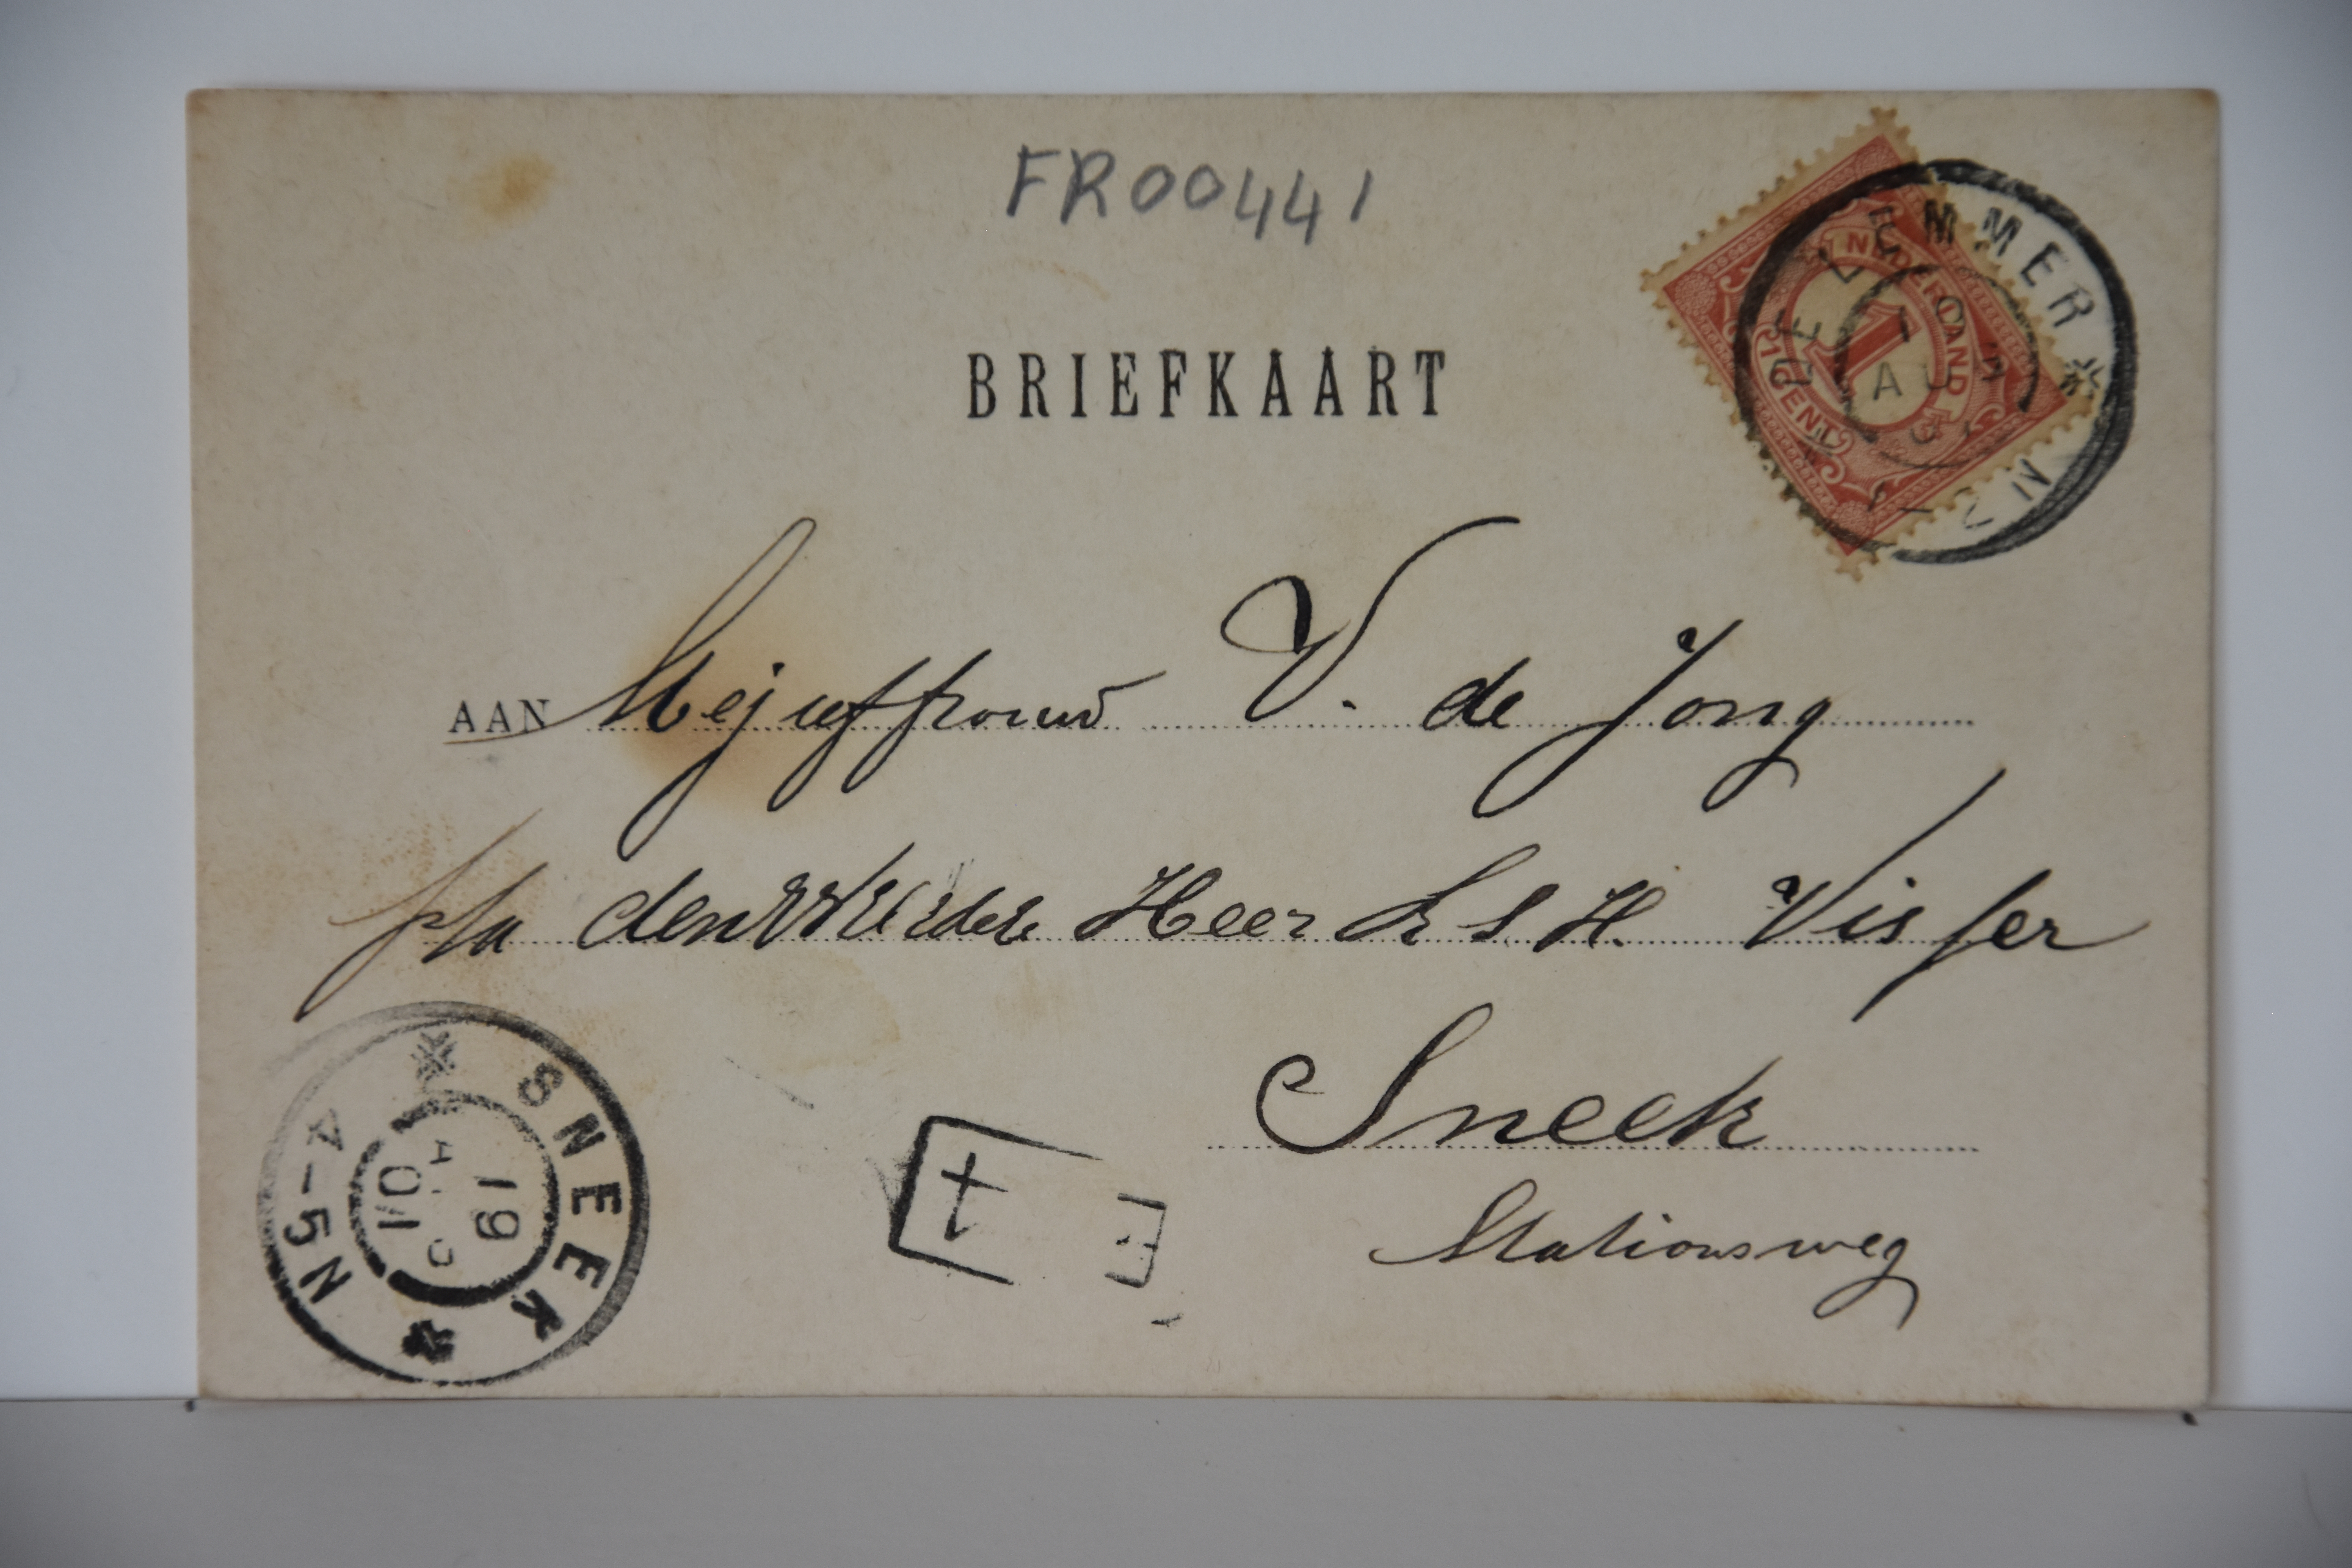 FR00441
BRIEFKAART
NEDERLAND
1
1 CENT
DE LEMMER
19
AUG
01
AAN Mejuffrouw V. de Jong
p/a den Heer S H. Visser
Sneek
Stationsweg
SNEEK
19
AUG
01
4-5N